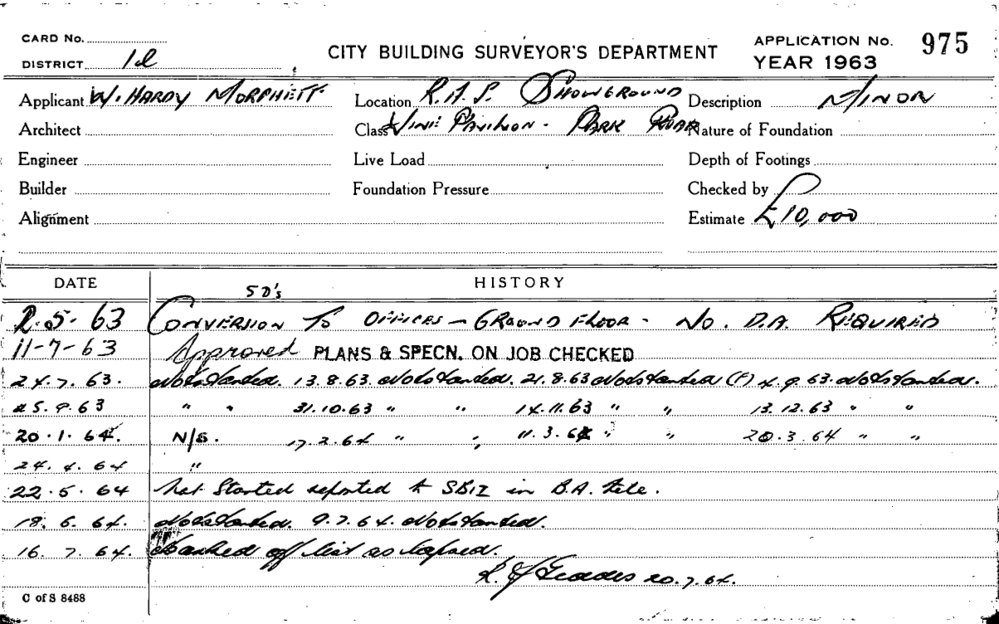 CARD No.
DISTRICT 1d
CITY BUILDING SURVEYOR'S DEPARTMENT
APPLICATION No. 975
YEAR 1963
Applicant W. HARDY MORPHETT
Location R.A.S. SHOWGROUND
Description MINOR
Architect
Class WINE PAVILION - PARK ROAD
Nature of Foundation
Engineer
Live Load
Depth of Footings
Builder
Foundation Pressure
Checked by
Alignment
Estimate £10,000
DATE
HISTORY
5 D's
2.5.63 CONVERSION TO OFFICES - GROUND FLOOR - No. D.A. REQUIRED
11-7-63 Approved PLANS & SPECN. ON JOB CHECKED
24.7.63. Not Started. 13.8.63. Not Started. 21.8.63 Not Started (P) 4.9.63. Not Started.
25.9.63 " " 31.10.63 " " 14.11.63 " " 13.12.63 " "
20.1.64. N/S. 17.2.64 " " 11.3.64 " " 20.3.64 " "
24.4.64 "
22.5.64 Not Started reported to SBIZ in B.A. File.
18.6.64. Not Started. 9.7.64. Not Started.
16.7.64. Marked off list as lapsed.
20.7.64.
C of S 8488